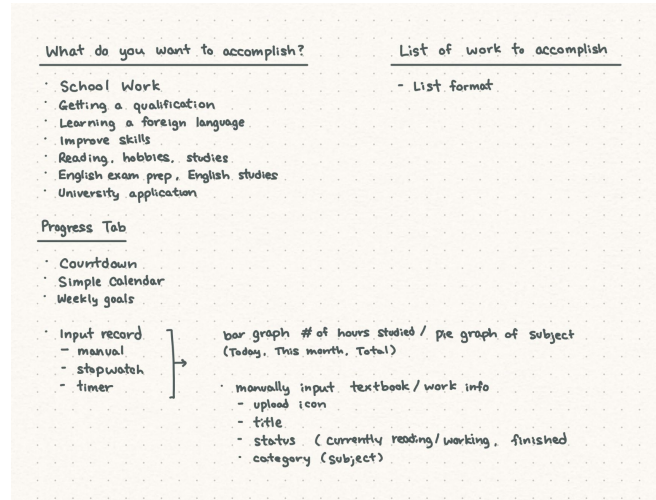 What do you want to accomplish?
· School Work
· Getting a qualification
· Learning a foreign language
· Improve skills
· Reading, hobbies, studies
· English exam prep, English studies
· University application
List of work to accomplish
- List format
Progress Tab
· Countdown
· Simple Calendar
· Weekly goals
· Input record
- manual
- stopwatch
- timer
bar graph # of hours studied / pie graph of subject
(Today, This month, Total)
· manually input textbook / work info
- upload icon
- title
- status ( currently reading/working, finished
· category (subject)